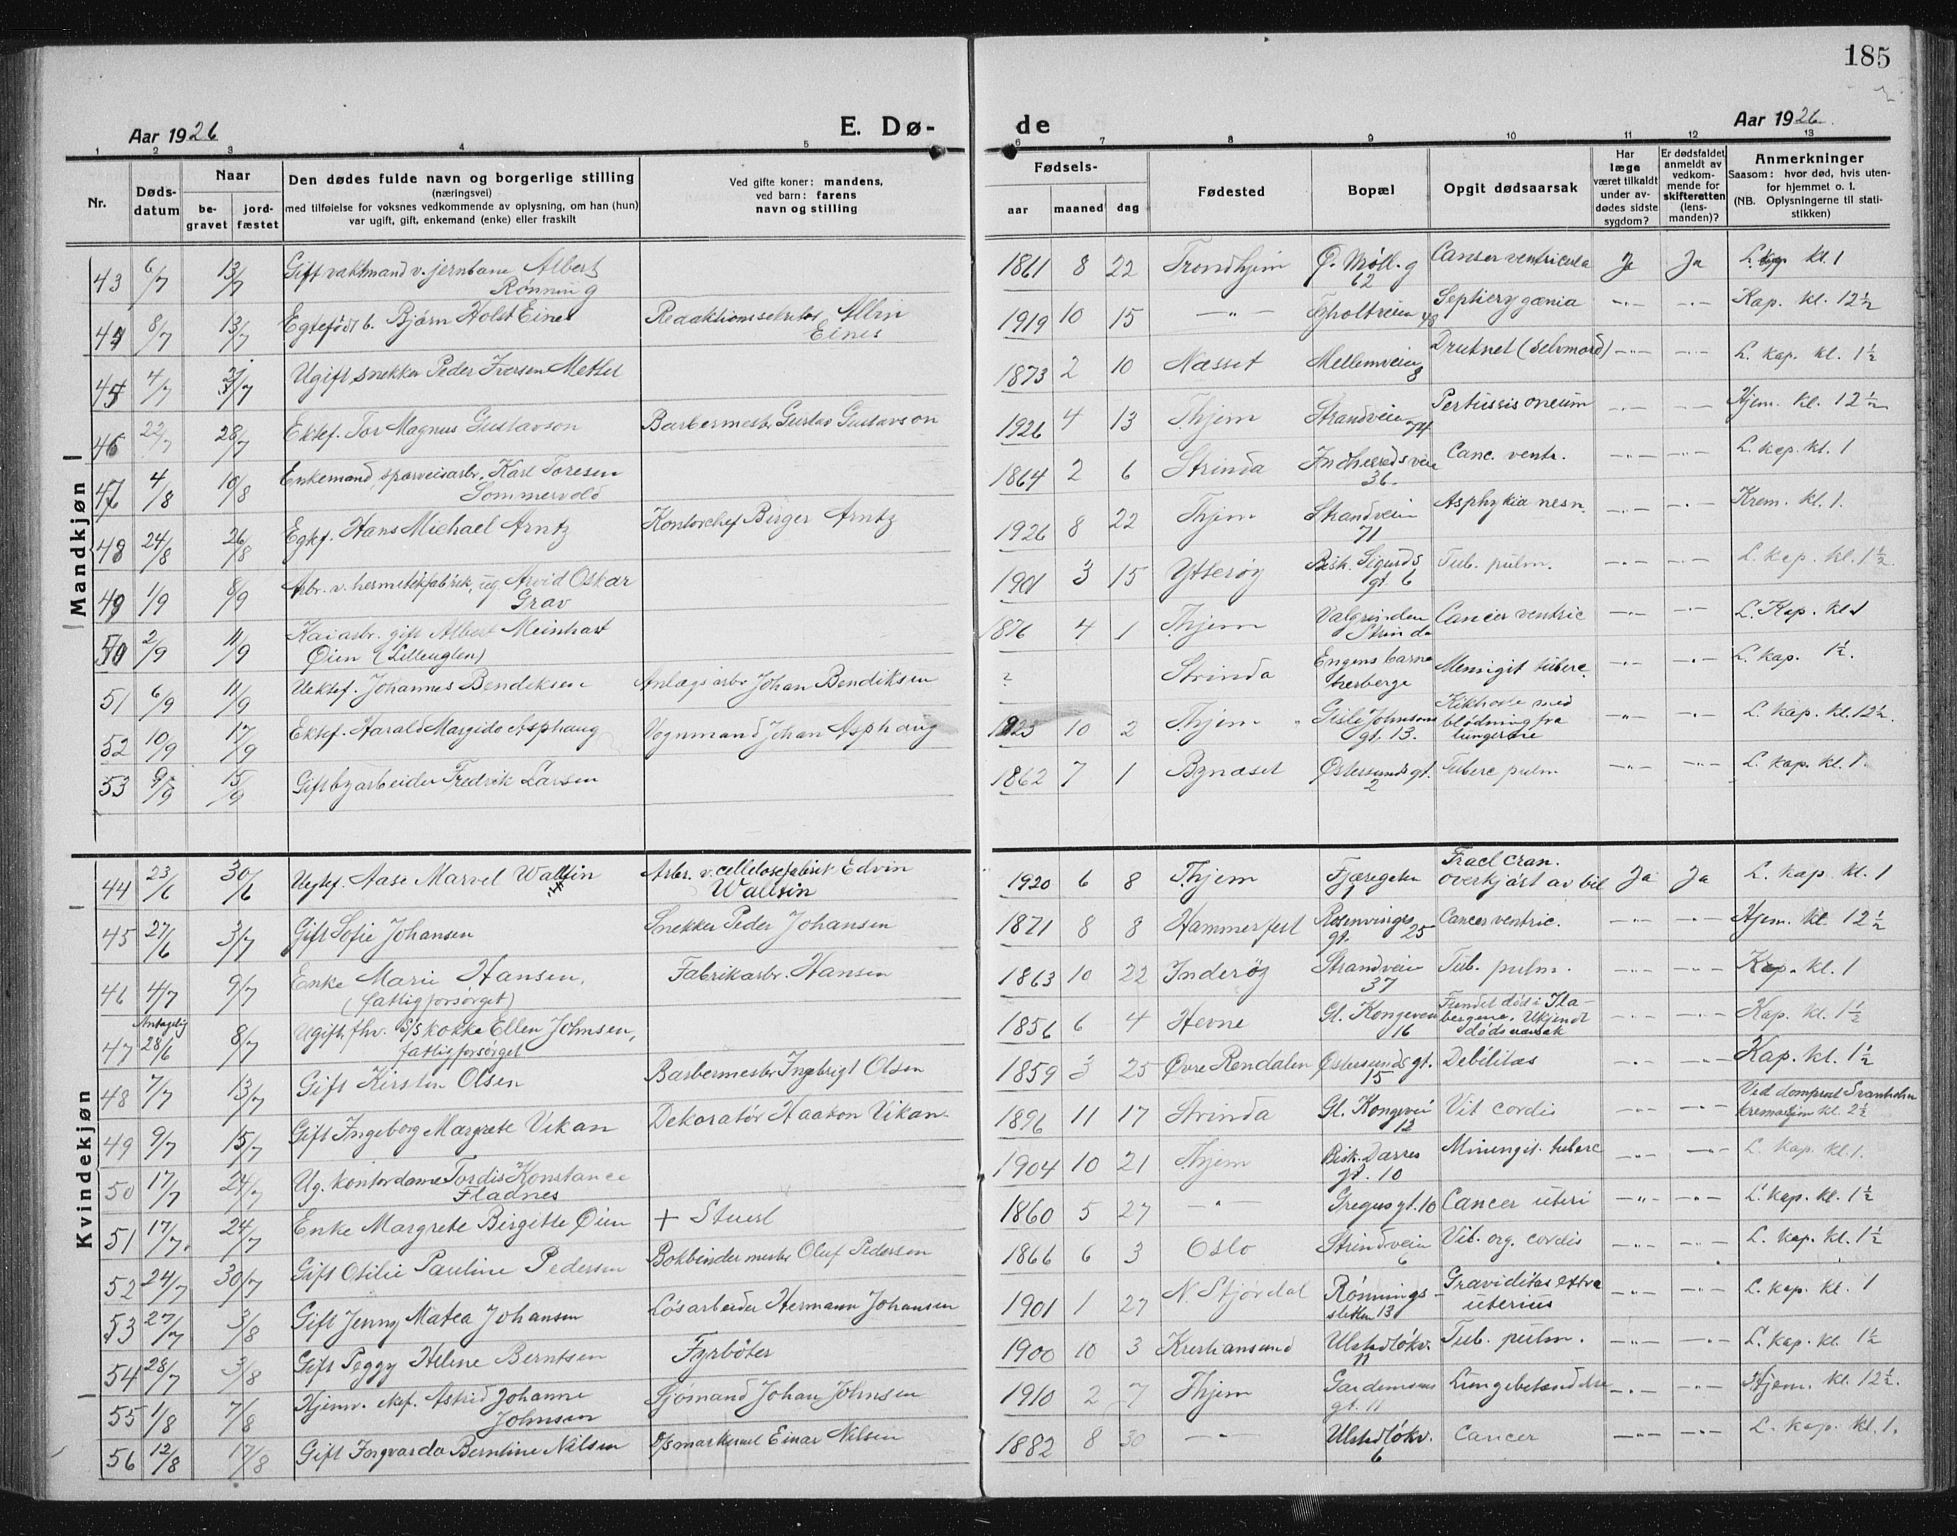 185
Aar 1926
E. Dø-
de
Aar 1926
1 2 3 4 5 6 7 8 9 10 11 12 13
Nr.
Døds-
datum
Naar
be-
gravet
jord-
fæstet
Den dødes fulde navn og borgerlige stilling
(næringsvei)
med tilføielse for voksnes vedkommende av oplysning, om han (hun)
var ugift, gift, enkemand (enke) eller fraskilt
Ved gifte koner: mandens,
ved barn: farens
navn og stilling
Fødsels-
aar maaned dag
Fødested
Bopæl
Opgit dødsaarsak
Har
læge
været tilkaldt
under av-
dødes sidste
sygdom?
Er dødsfaldet
anmeldt av
vedkom-
mende for
skifteretten
(lens-
manden)?
Anmerkninger
Saasom: hvor død, hvis uten-
for hjemmet o. l.
(NB. Oplysningerne til stati-
stikken)
Mandkjøn
43 6/7 13/7 Gift vaktmand v. jernbane Albert Rønning 1861 8 22 Trondhjem Ø. Møll.g 62 Cancer ventricula Ja Ja L. kap. kl. 1
44 8/7 13/7 Egtefødt b. Bjørn Holst Eines Redaktionssekretær Albin Eines 1919 10 15 —„— Tyholtveien 48 —„— —„— Kap. kl. 12½
45 4/7 /7 Ugift snekker Peder Iversen Metlet 1873 2 10 Næsset Mellemveien 8 Druknet (selvmord) —„— —„— L. kap. kl. 1½
46 22/7 28/7 Ektef. Tor Magnus Gustavson Barbermestr. Gustav Gustavson 1926 4 13 Thjem Strandveien 74 —„— —„— Hjem. kl. 12½
47 4/8 10/8 Enkemand, sporveisarbr. Karl Toresen Sommervold 1864 2 6 Strinda Indherredsveien 36. Canc. ventr. —„— —„— L. kap. kl. 1
48 24/8 26/8 Egtf. Hans Michael Arntz Kontorchef Birger Arntz 1926 8 22 Thjem Strandveien 71 Asphykia neon. —„— —„— Krem. kl. 1.
49 1/9 8/9 Arbr. v. hermetikfabrik, ug. Arvid Oskar Grav 1901 3 15 Ytterøy Bisk. Sigurds gt. 6 Tub. pulm. —„— —„— L. kap. kl. 1½
50 2/9 11/9 Kaiarbr. gift Albert Meinhart Øien (Lilleuglen) 1876 4 1 Thjem Valgrinden Strinda Cancer ventric —„— —„— L. Kap. kl 1
51 6/9 11/9 Uektef. Johannes Bendiksen Anlægsarbr Johan Bendiksen ? Strinda Engens barneherberge Meningit tuberc. —„— —„— L. kap. 1½.
52 10/9 17/9 Ektef. Harald Margido Asphaug Vognmand Johan Asphaug 1923 10 2 Thjem Gisle Johnsons gt. 13. Kikhoste med blødning fra lungerne —„— —„— L. kap. kl. 12½.
53 9/9 15/9 Gift byarbeider Fredrik Larsen 1862 7 1 Bynæset Østersundsgt. 2 Tuberc pulm —„— —„— L. kap. kl. 1.
Kvindekjøn
44 23/6 30/6 Uegtef. Aase Marvel Wallin Arbr. v. cellulosefabrik Edvin Wallsin 1920 6 8 Thjem Fjæregaten 1 Fract cran. overkjørt av bil Ja Ja L. kap. kl. 1
45 27/6 3/7 Gift Sofie Johansen Snekker Peder Johansen 1871 8 8 Hammerfest Rosenvinges gt. 25 Cancer ventric. —„— —„— Hjem. kl. 12½
46 4/7 9/7 Enke Marie Hansen, (fattigforsørget) Fabrikarbr. Hansen 1863 10 22 Inderøy Strandveien 37 Tub. pulm. —„— —„— Kap. kl. 1
47 Antagelig 28/6 8/7 Ugift fhv. S/S kokke Ellen Johnsen, fattigforsørget 1856 6 4 Hevne Gl. Kongevei 16 Fundet død i Ilabergene, Ukjendt dødsaarsak —„— —„— Kap. kl. 1½
48 7/7 13/7 Gift Kirsten Olsen Barbermestr Ingebrigt Olsen 1859 3 25 Øvre Rendalen Østersundsgt. 15 Debilitas —„— —„— Kap. kl. 1½
49 9/7 15/7 Gift Ingeborg Margrete Vikan Dekoratør Haakon Vikan 1896 11 17 Strinda Gl. Kongevei 12 Vit cordis —„— —„— Ved domprost Svanholm kremasjon kl. 2½
50 17/7 24/7 Ug. kontordame Tordis Konstance Fladnes 1904 10 21 Thjem Bisk. Darres gt. 10 Miningit. tuberc —„— —„— L. kap. kl. 1.
51 17/7 24/7 Enke Margrete Birgitte Øien + Stuert 1860 5 27 —„— Gregusgt. 10 Cancer uteri —„— —„— L. kap. kl. 1½
52 24/7 30/7 Gift Otilie Pauline Pedersen Bokbindermestr Oluf Pedersen 1866 6 3 Oslo Strindveien 6 Vit. org. cordis —„— —„— L. kap. kl. 1½
53 27/7 3/8 Gift Jenny Matea Johansen Løsarbeider Hermann Johansen 1901 1 27 N. Stjørdal Rønningsletten 13 Graviditas extra uterius —„— —„— L. kap. kl. 1
54 28/7 3/8 Gift Peggy Helene Berntsen Fyrbøter 1900 10 3 Kristiansund Ulstadløkv. 11 Tub. pulm. —„— —„— L. kap. kl. 1½
55 1/8 7/8 Hjemv. ekf. Astrid Johanne Johnsen Sjømand Johan Johnsen 1910 2 7 Thjem Gardemoens gt. 11 Lungebetændelse —„— —„— Hjem. kl. 12½.
56 12/8 17/8 Gift Ingvarda Berntine Nilsen Einar Nilsen 1882 8 30 —„— Ulstadløkv. 6 Cancer —„— —„— L. kap. kl. 1.